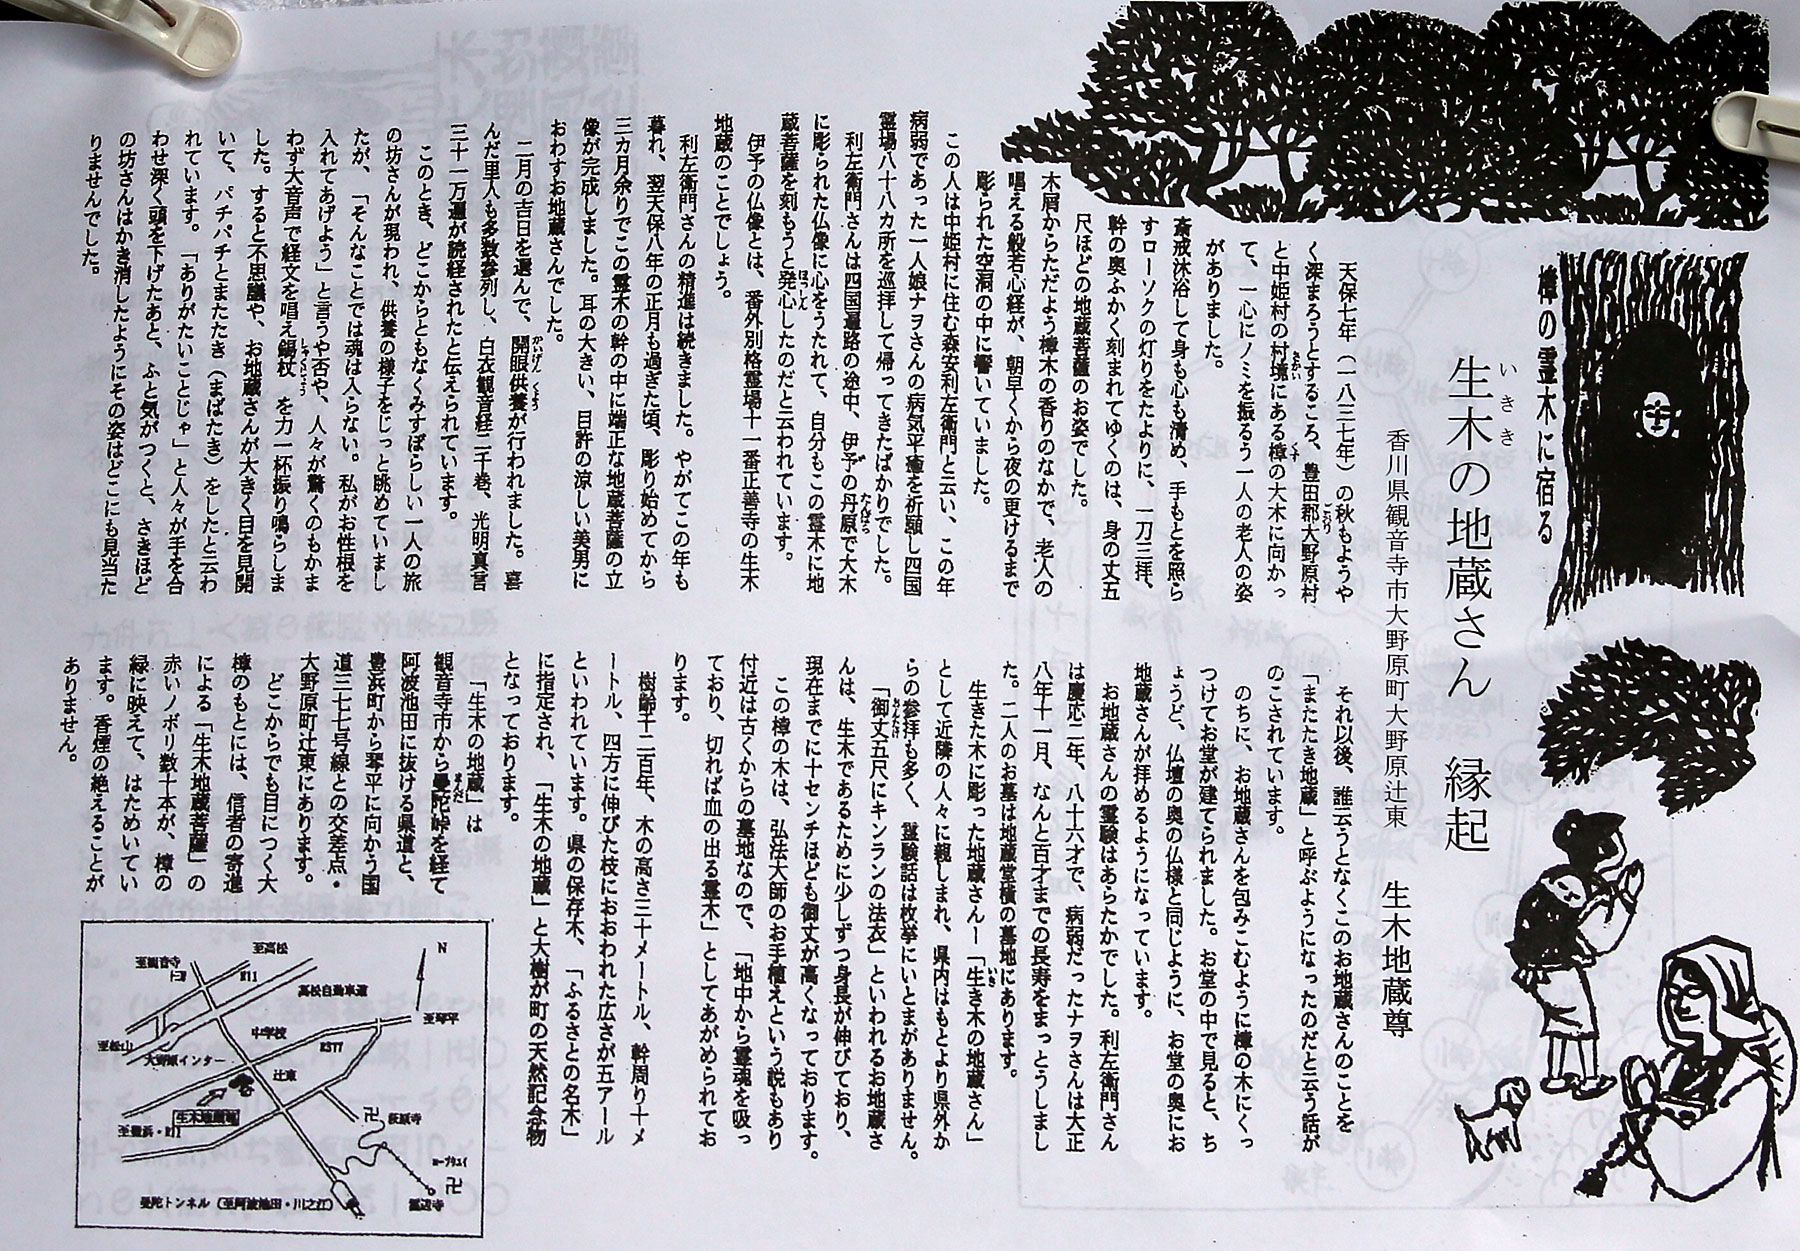 樟の霊木に宿る
生木の地蔵さん 縁起
いきき
香川県観音寺市大野原町大野原辻東 生木地蔵尊
天保七年(一八三七年)の秋もようや
く深まろうとするころ、豊田郡大野原村
と中姫村の村境にある樟の大木に向かっ
て、一心にノミを振るう一人の老人の姿
がありました。
斎戒沐浴して身も心も清め、手もとを照ら
すローソクの灯りをたよりに、一刀三拝、
幹の奥ふかく刻まれてゆくのは、身の丈五
尺ほどの地蔵菩薩のお姿でした。
木屑からただよう樟木の香りのなかで、老人の
唱える般若心経が、朝早くから夜の更けるまで
彫られた空洞の中に響いていました。
この人は中姫村に住む森安利左衛門と云い、この年
病弱であった一人娘ナヲさんの病気平癒を祈願し四国
霊場八十八カ所を巡拝して帰ってきたばかりでした。
利左衛門さんは四国遍路の途中、伊予の丹原で大木
に彫られた仏像に心をうたれて、自分もこの霊木に地
蔵菩薩を刻もうと発心したのだと云われています。
伊予の仏像とは、番外別格霊場十一番正善寺の生木
地蔵のことでしょう。
利左衛門さんの精進は続きました。やがてこの年も
暮れ、翌天保八年の正月も過ぎた頃、彫り始めてから
三カ月余りでこの霊木の幹の中に端正な地蔵菩薩の立
像が完成しました。耳の大きい、目許の涼しい美男に
おわすお地蔵さんでした。
二月の吉日を選んで、開眼供養が行われました。喜
んだ里人も多数参列し、白衣観音経二千巻、光明真言
三十一万遍が読経されたと伝えられています。
このとき、どこからともなくみすぼらしい一人の旅
の坊さんが現われ、供養の様子をじっと眺めていまし
たが、「そんなことでは魂は入らない。私がお性根を
入れてあげよう」と言うや否や、人々が驚くのもかま
わず大音声で経文を唱え錫杖を力一杯振り鳴らしま
した。すると不思議や、お地蔵さんが大きく目を見開
いて、パチパチとまたたき(まばたき)をしたと云わ
れています。「ありがたいことじゃ」と人々が手を合
わせ深く頭を下げたあと、ふと気がつくと、さきほど
の坊さんはかき消したようにその姿はどこにも見当た
りませんでした。
それ以後、誰云うとなくこのお地蔵さんのことを
「またたき地蔵」と呼ぶようになったのだと云う話が
のこされています。
のちに、お地蔵さんを包みこむように樟の木にくっ
つけてお堂が建てられました。お堂の中で見ると、ち
ょうど、仏壇の奥の仏様と同じように、お堂の奥にお
地蔵さんが拝めるようになっています。
お地蔵さんの霊験はあらたかでした。利左衛門さん
は慶応二年、八十六才で、病弱だったナヲさんは大正
八年十一月、なんと百才までの長寿をまっとうしまし
た。二人のお墓は地蔵堂横の墓地にあります。
生きた木に彫った地蔵さんー「生き木の地蔵さん」
として近隣の人々に親しまれ、県内はもとより県外か
らの参拝も多く、霊験話は枚挙にいとまがありません。
「御丈五尺にキンランの法衣」といわれるお地蔵さ
んは、生木であるために少しずつ身長が伸びており、
現在までに十センチほども御丈が高くなっております。
この樟の木は、弘法大師のお手植えという説もあり
付近は古くからの墓地なので、「地中から霊魂を吸っ
ており、切れば血の出る霊木」としてあがめられてお
ります。
樹齢千二百年、木の高さ三十メートル、幹周り十メ
ートル、四方に伸びた枝におおわれた広さが五アール
といわれています。県の保存木、「ふるさとの名木」
に指定され、「生木の地蔵」と大樹が町の天然記念物
となっております。
「生木の地蔵」は
観音寺市から曼陀峠を経て
阿波池田に抜ける県道と、
豊浜町から琴平に向かう国
道三七七号線との交差点・
大野原町辻東にあります。
どこからでも目につく大
樟のもとには、信者の寄進
による「生木地蔵菩薩」の
赤いノボリ数十本が、樟の
緑に映えて、はためいてい
ます。香煙の絶えることが
ありません。
N
至高松
至観音寺
R11
高松自動車道
至琴平
中学校
R377
至松山
大野原インター
辻東
生木地蔵尊
至豊浜・R11
萩原寺
ロープウェイ
雲辺寺
曼陀トンネル(至阿波池田・川之江)